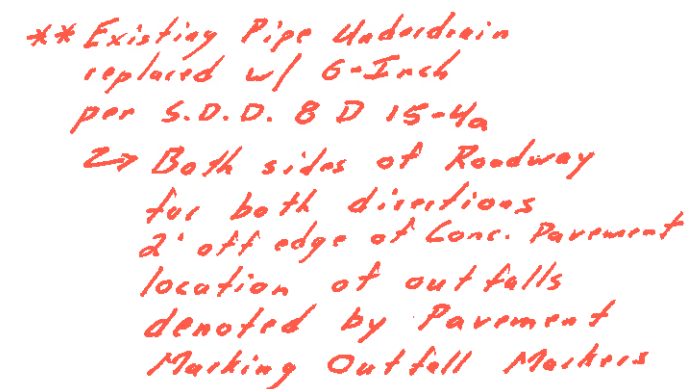 ** Existing Pipe Underdrain
replaced w/ 6-Inch
per S.D.D. 8 D 15-4a
↳ Both sides of Roadway
for both directions
2' off edge of Conc. Pavement
location of outfalls
denoted by Pavement
Marking Outfall Markers